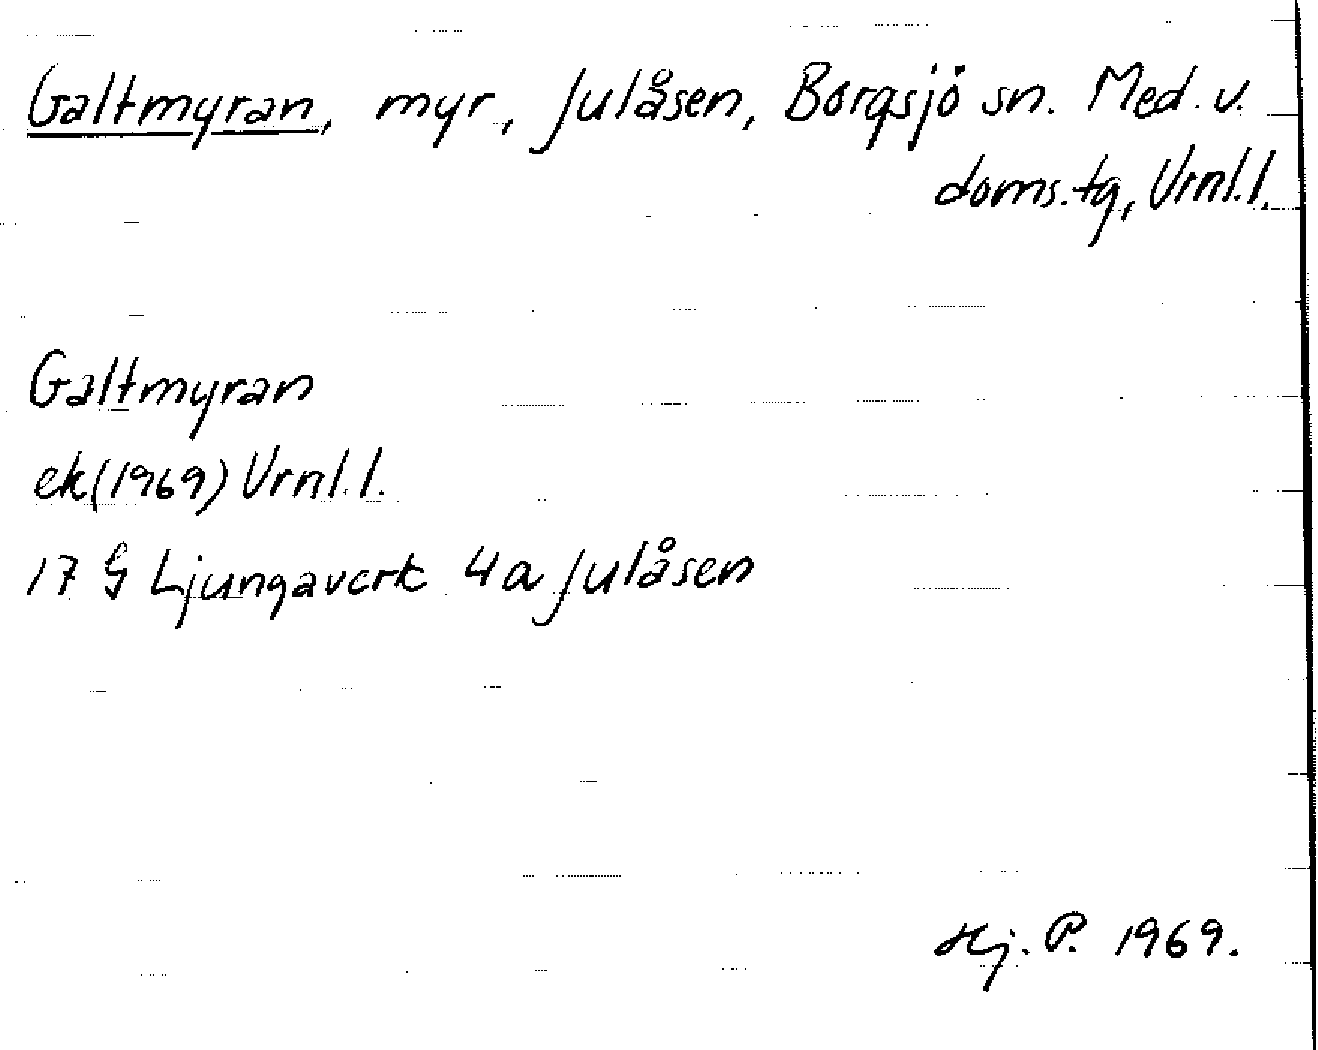 Galtmyran, myr, Julåsen, Borgsjö sn. Med. v.
doms. tg, Vrnl. l.
Galtmyran
ek (1969) Vrnl. l.
17 G Ljungaverk 4a Julåsen
Hj. P. 1969.